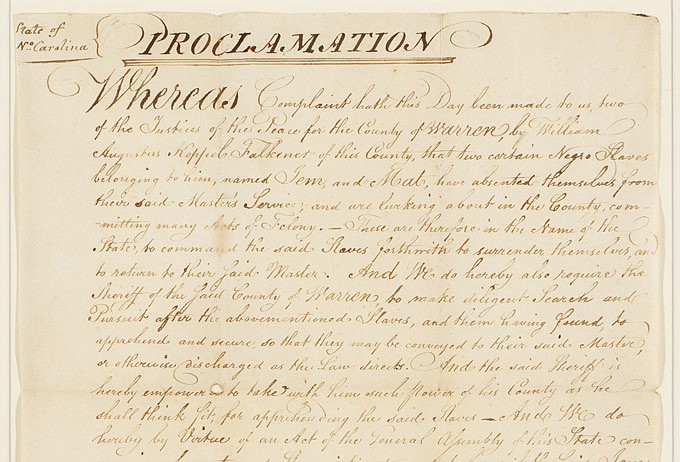 State of
No. Carolina
PROCLAMATION
Whereas Complaint hath this Day been made to us, two
of the Justices of the Peace for the County of Warren, by William
Augustus Falkener of this County, that two certain Negro Slaves
belonging to him, named Jem, and Mat, have absented themselves from
their said Masters Service; and are lurking about in the County, com-
mitting many Acts of Felony. — These are therefore in the Name of the
State, to command the said Slaves forthwith to surrender themselves, and
to return to their said Master. And We do hereby also require the
Sheriff of the said County of Warren, to make diligent Search and
Pursuit after the abovementioned Slaves, and them having found, to
apprehend and secure, so that they may be conveyed to their said Master,
or otherwise discharged as the Law directs. And the said Sheriff is
hereby empowered to take with him such Power of his County as he
shall think fit, for apprehending the said Slaves — And We do
hereby by Virtue of an Act of the General Assembly of this State con-